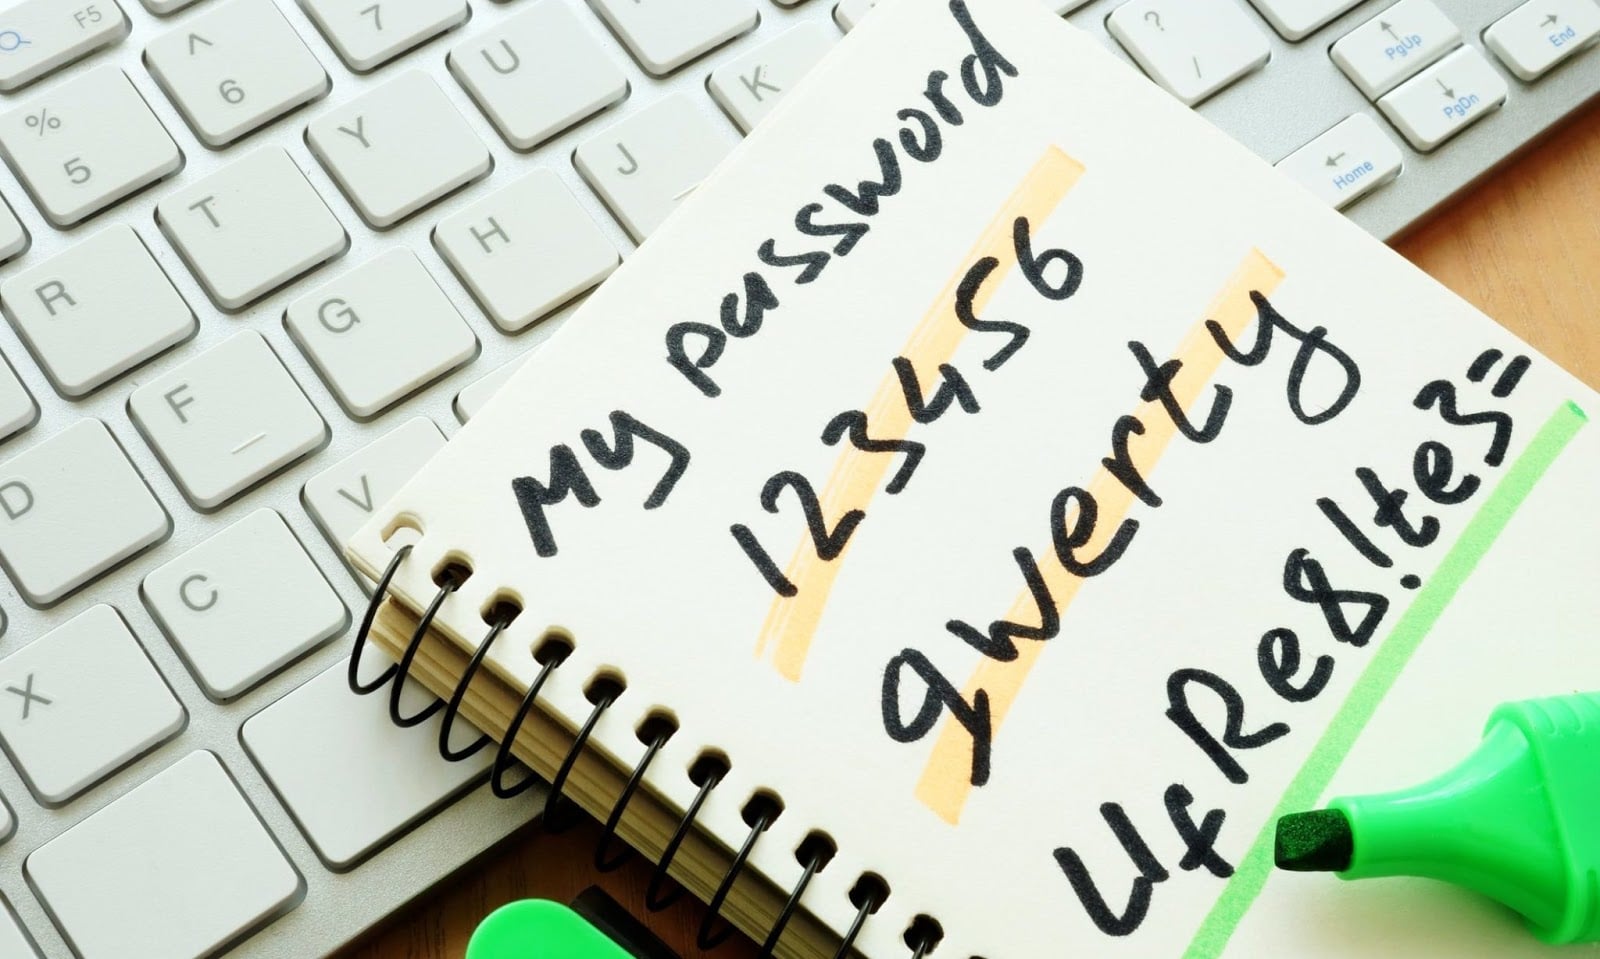 My password
123456
qwerty
UfRe8!te3=
F5
%
5
^
6
7
R
T
Y
U
D
F
G
H
J
K
X
C
V
?
/
PgUp
PgDn
Home
End